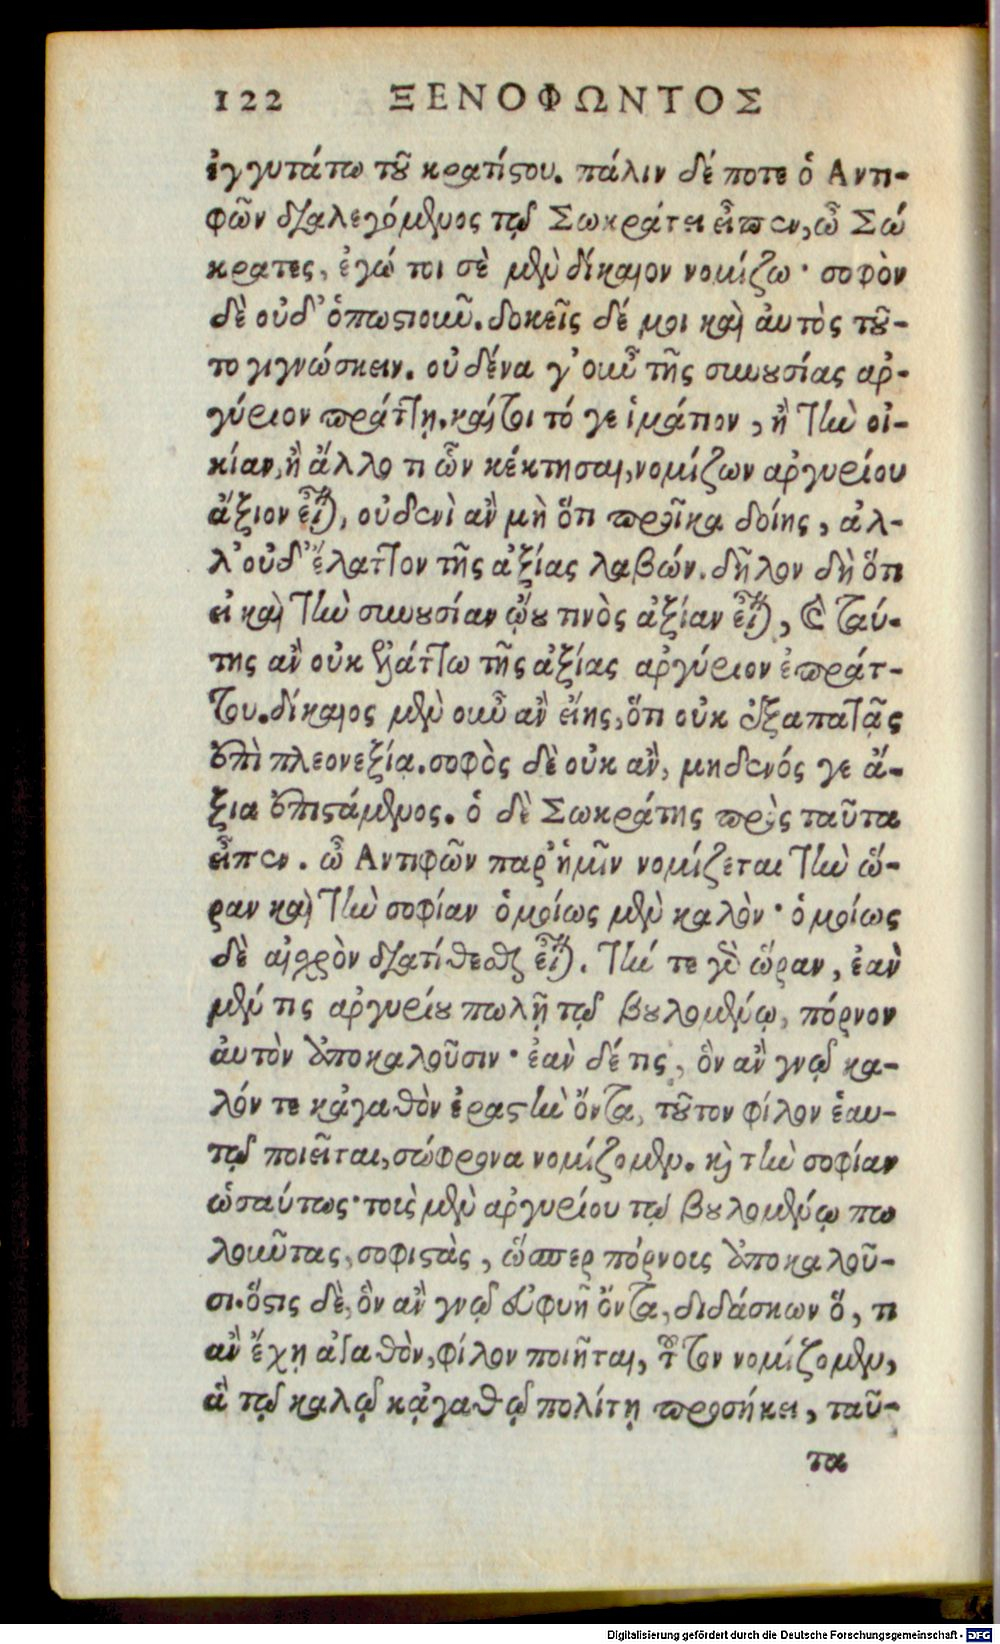 122 ΞΕΝΟΦΩΝΤΟΣ
ἐγγυτάτω τοῦ κρατίστου. πάλιν δέ ποτε ὁ Αντι-
φῶν διαλεγόμενος τῷ Σωκράτει εἶπεν, ὦ Σώ
κρατες, ἐγώ τοι σὲ μὲν δίκαιον νομίζω· σοφὸν
δὲ οὐδ' ὁπωστιοῦν. δοκεῖς δέ μοι καὶ ἀυτὸς τοῦ-
το γιγνώσκειν. οὐδένα γ' οὖν τῆς συνουσίας αρ-
γύριον πράττῃ. καίτοι τό γε ἱμάτιον, ἢ τὴν οἰ-
κίαν, ἢ ἄλλο τι ὧν κέκτησαι, νομίζων αργυρίου
ἄξιον εἶναι, οὐδενὶ ἂν μὴ ὅτι προῖκα δοίης, ἀλ-
λ' οὐδ' ἔλαττον τῆς ἀξίας λαβών. δῆλον δὴ ὅτι
εἰ καὶ τὴν συνουσίαν ᾤου τινὸς ἀξίαν εἶναι, καὶ ταύ-
της ἂν οὐκ ἐλάττω τῆς ἀξίας αργύριον ἐπράτ-
του. δίκαιος μὲν οὖν ἂν εἴης, ὅτι οὐκ ἐξαπατᾷς
ἐπὶ πλεονεξίᾳ. σοφὸς δὲ οὐκ ἂν, μηδενός γε ἄ-
ξια ἐπιστάμενος. ὁ δὲ Σωκράτης πρὸς ταῦτα
εἶπεν. ὦ Αντιφῶν παρ' ἡμῖν νομίζεται τὴν ὥ-
ραν καὶ τὴν σοφίαν ὁμοίως μὲν καλὸν· ὁμοίως
δὲ αἰσχρὸν διατίθεσθαι εἶναι. τήν τε γὰρ ὥραν, ἐαν
μέν τις αργυρίου πωλῇ τῷ βουλομένῳ, πόρνον
ἀυτὸν ἀποκαλοῦσιν· ἐὰν δέ τις, ὃν ἂν γνῷ κα-
λόν τε κἀγαθὸν ἐραστὴν ὄντα, τοῦτον φίλον ἑαυ-
τῷ ποιεῖται, σώφρονα νομίζομεν. καὶ τὴν σοφίαν
ὡσαύτως· τοὺς μὲν αργυρίου τῷ βουλομένῳ πω
λοῦντας, σοφιστὰς, ὥσπερ πόρνους ἀποκαλοῦ-
σι. ὅστις δὲ, ὃν ἂν γνῷ εὐφυῆ ὄντα, διδάσκων ὅ, τι
ἂν ἔχῃ ἀγαθὸν, φίλον ποιῆται, τοῦτον νομίζομεν,
ἃ τῷ καλῷ κᾀγαθῷ πολίτῃ προσήκει, ταῦ-
τα
Digitalisierung gefördert durch die Deutsche Forschungsgemeinschaft - DFG